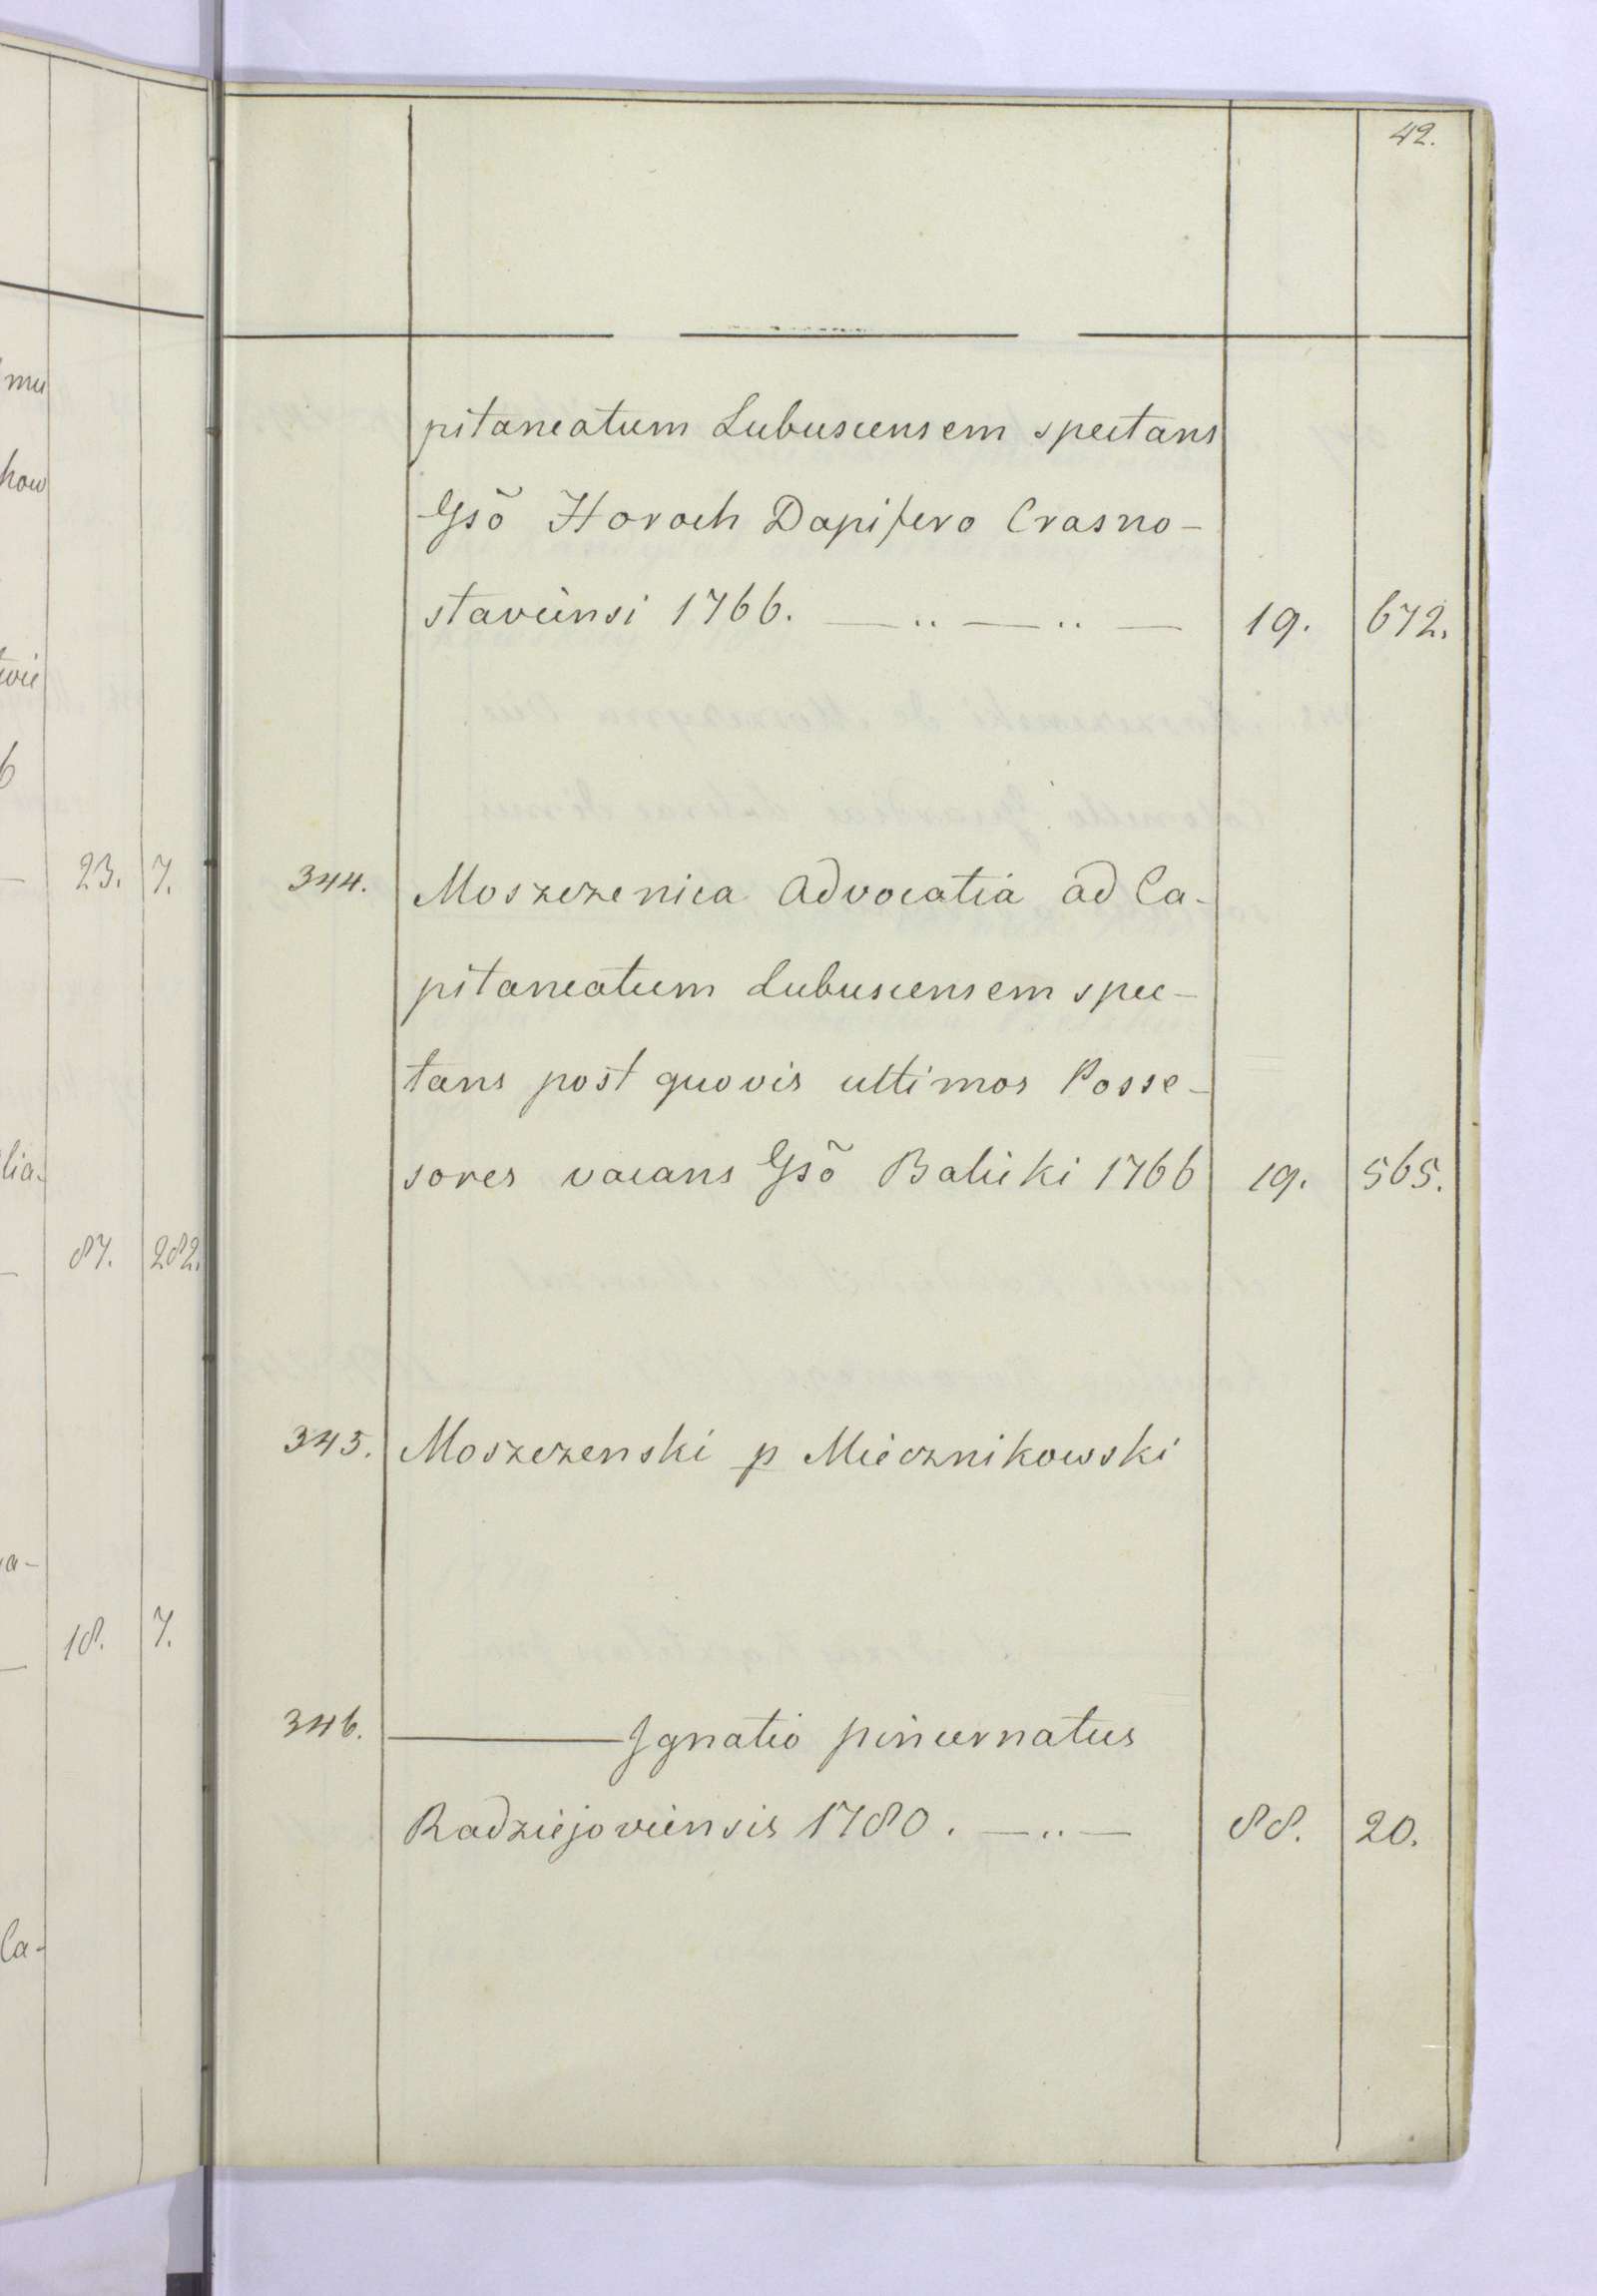 42.
pitaneatum Lubuscensem spectans
Gsõ Horoch Dapifero Crasno-
staviensi 1766. — .. — .. — 19. 672.
344. Moszczenica Advocatia ad Ca-
pitaneatum Lubuscensem spec-
tans post quovis ultimos Posse-
sores vacans Gsõ Balicki 1766 19. 565.
345. Moszczenski p Miecznikowski
346. ——— Ignatio pincernatus
Radziejoviensis 1780. — .. — 88. 20.
mu
how
6
23. 7.
lia.
87. 282.
a-
18. 7.
Ca-